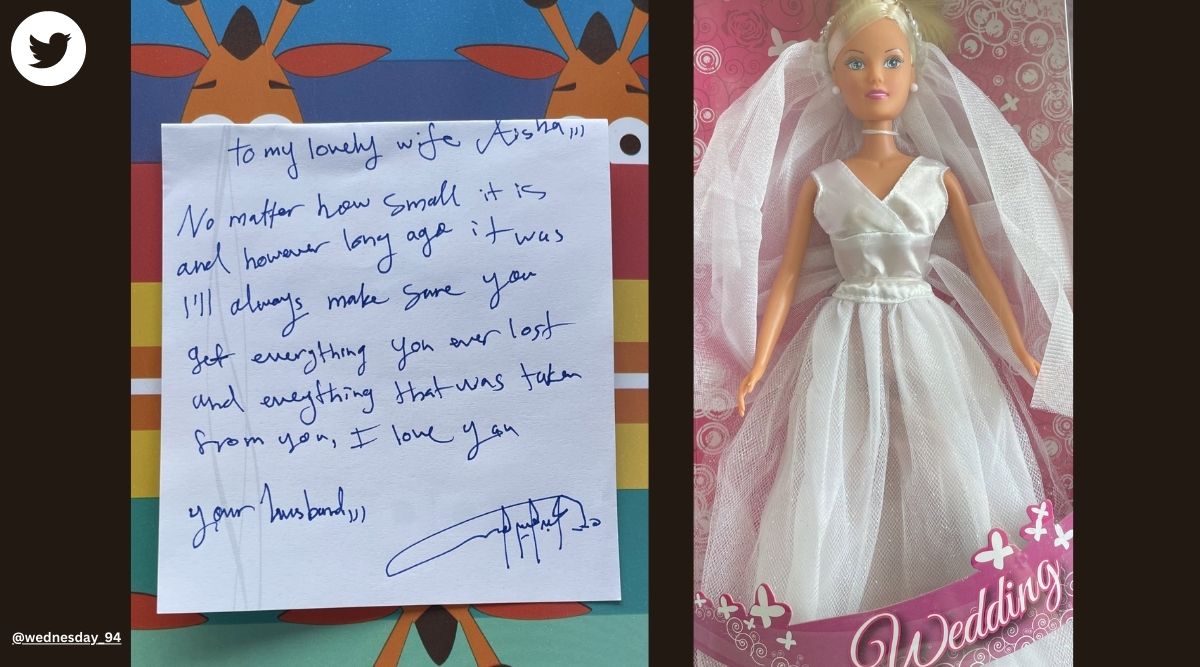 to my lovely wife Aisha,,,
No matter how small it is
and however long ago it was
I'll always make sure you
get everything you ever lost
and eveything that was taken
from you, I love you
your husband,,,
Wedding
@wednesday_94